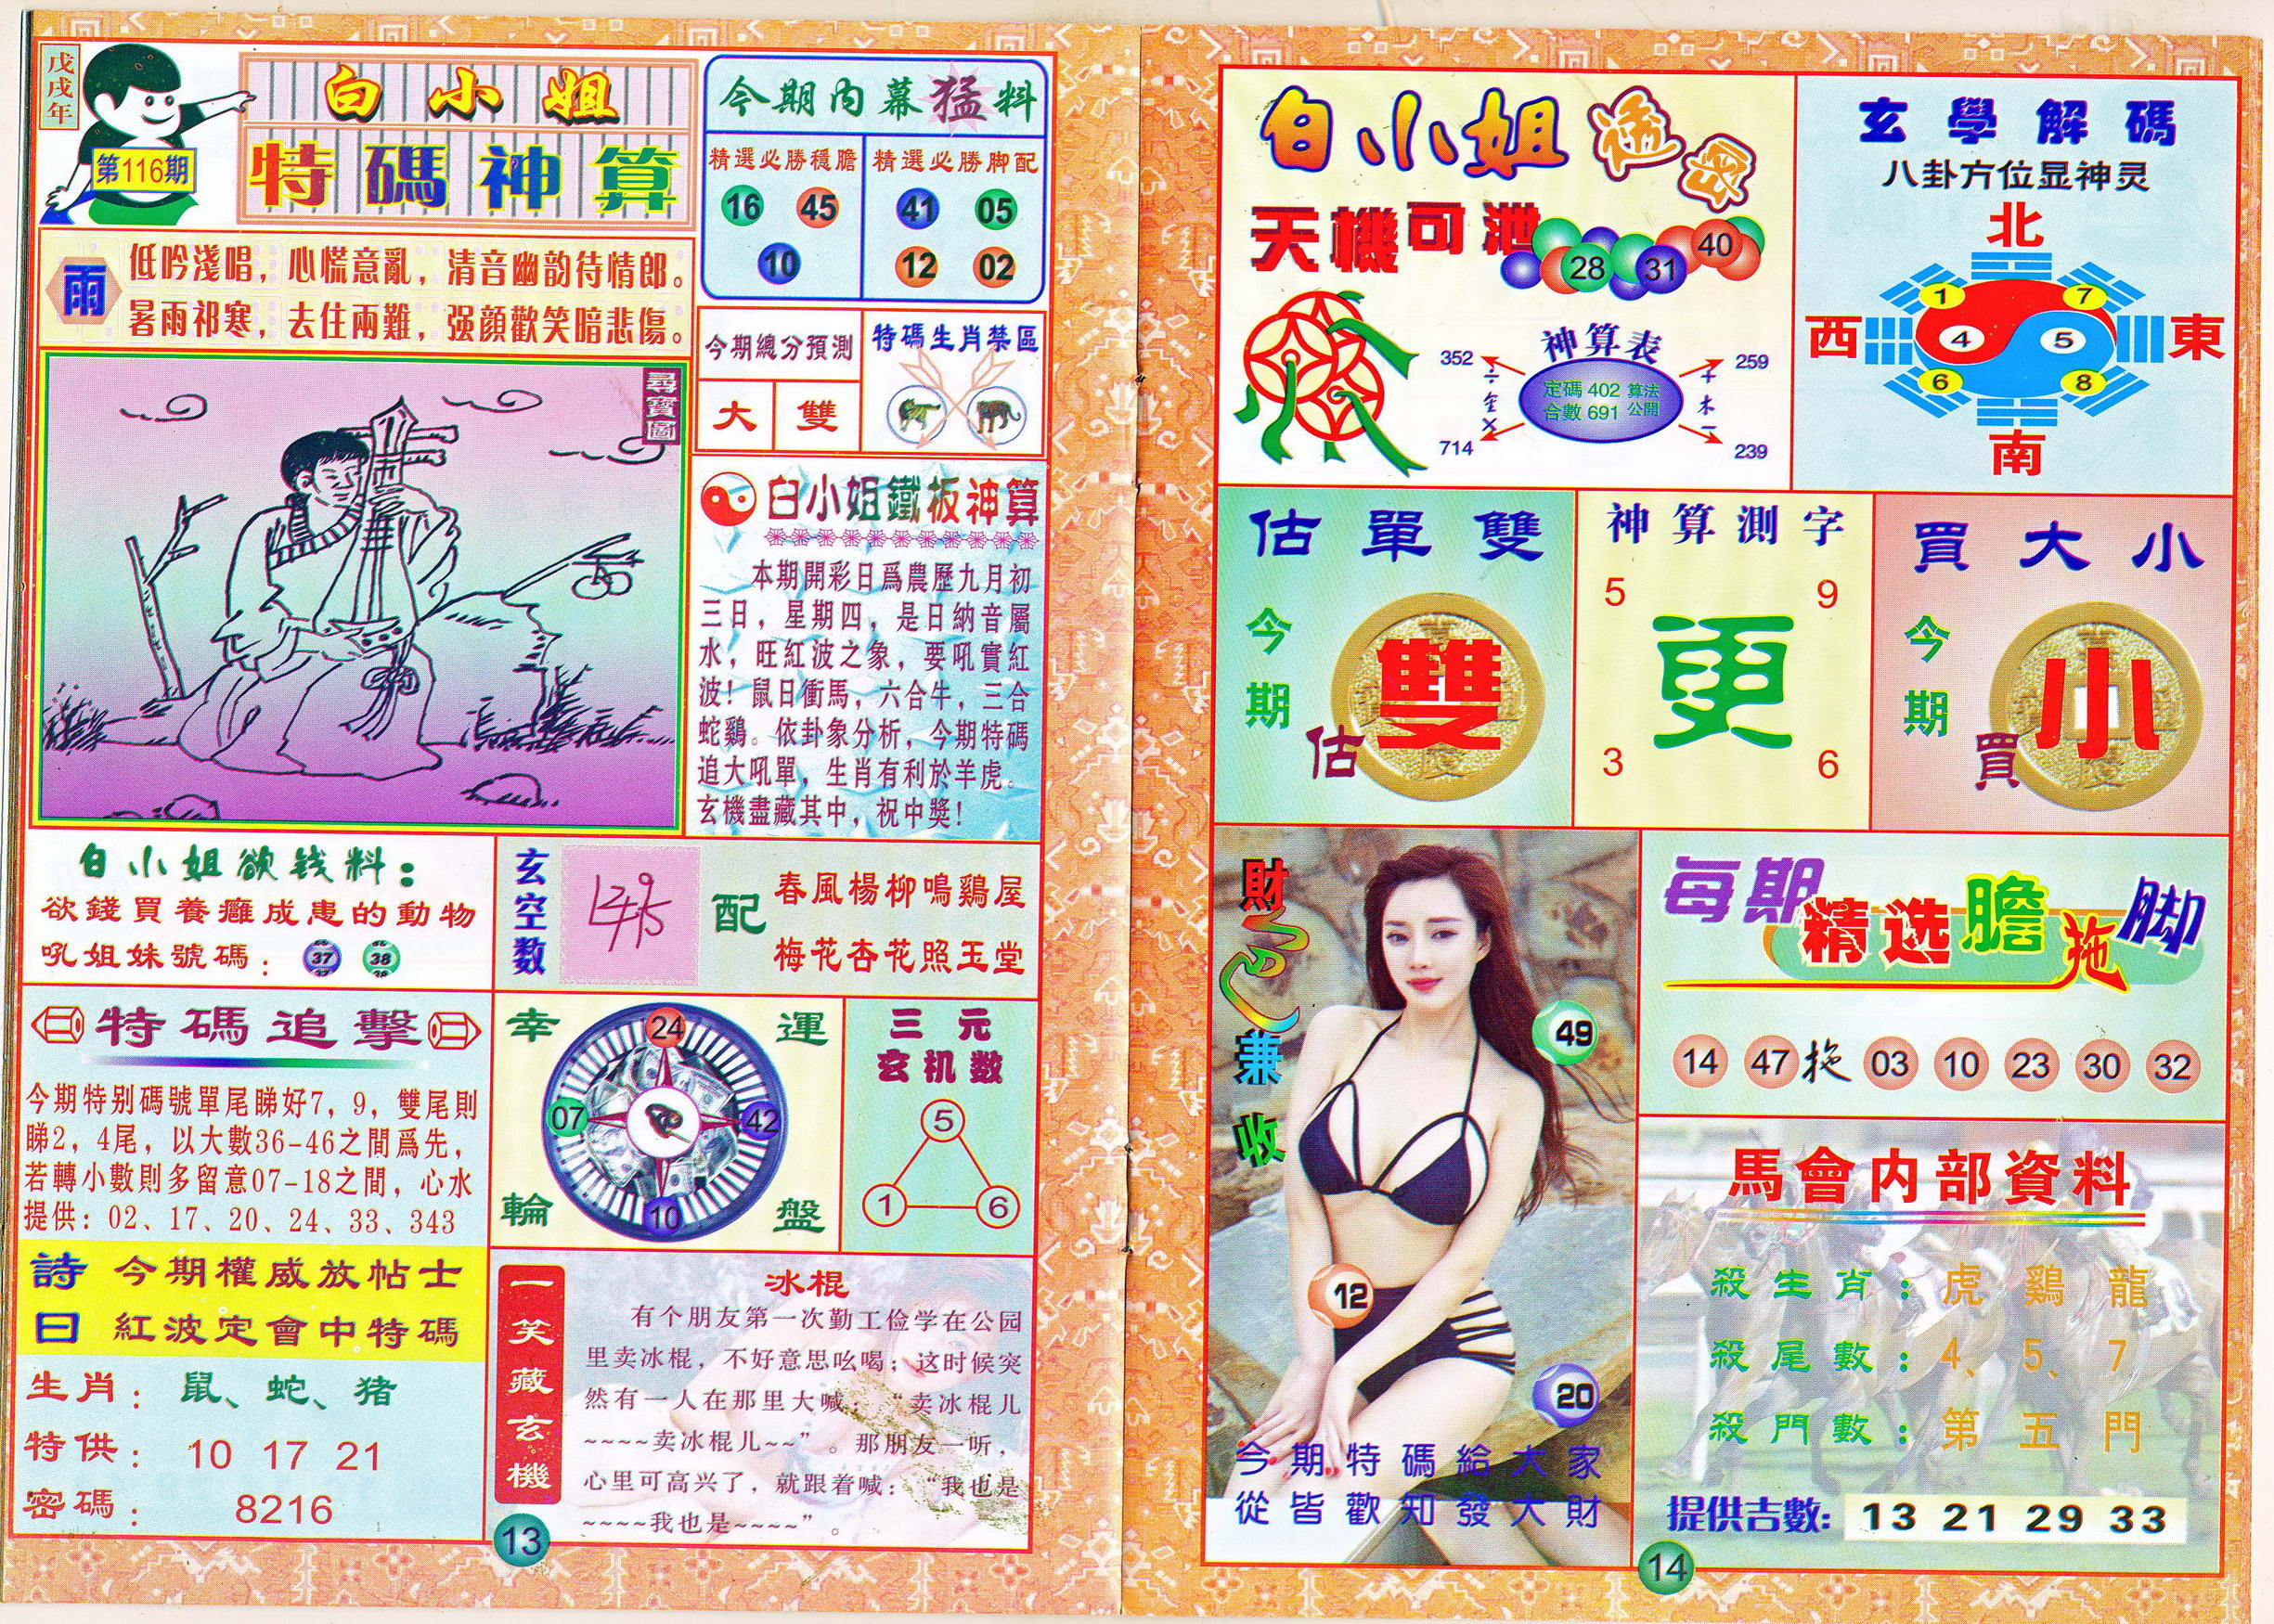 戊戌年
第116期
白小姐
特碼神算
雨
低吟淺唱，心慌意亂，清音幽韵待情郎。
暑雨祁寒，去住兩難，强顔歡笑暗悲傷。
尋寶圖
今期内幕猛料
精選必勝穩膽
16 45
10
精選必勝脚配
41 05
12 02
今期總分預測
大 雙
特碼生肖禁區
白小姐鐵板神算
本期開彩日爲農歷九月初
三日，星期四，是日納音屬
水，旺紅波之象，要吼實紅
波！鼠日衝馬，六合牛，三合
蛇鷄。依卦象分析，今期特碼
追大吼單，生肖有利於羊虎。
玄機盡藏其中，祝中獎！
白小姐欲钱料：
欲錢買養癰成患的動物
吼姐妹號碼：37 38
玄空数
配
春風楊柳鳴鷄屋
梅花杏花照玉堂
特碼追擊
今期特别碼號單尾睇好7，9，雙尾則
睇2，4尾，以大數36-46之間爲先，
若轉小數則多留意07-18之間，心水
提供：02、17、20、24、33、343
幸運輪盤
24
07 42
10
三元
玄机数
5
1 6
詩曰
今期權威放帖士
紅波定會中特碼
生肖：鼠、蛇、猪
特供：10 17 21
密碼：8216
一笑藏玄機
冰棍
有个朋友第一次勤工俭学在公园
里卖冰棍，不好意思吆喝；这时候突
然有一人在那里大喊：“卖冰棍儿
~~~~卖冰棍儿~~”。那朋友一听，
心里可高兴了，就跟着喊：“我也是
~~~~我也是~~~~”。
13
白小姐透密
天機可泄
28 31 40
神算表
352 259
÷ 全 ×
定碼 402 算法
合數 691 公開
+ 木 −
714 239
玄學解碼
八卦方位显神灵
北
1 7
西 4 5 東
6 8
南
估單雙
今期
估
雙
神算測字
5 9
更
3 6
買大小
今期
買
小
財色兼收
49
12
20
今期特碼給大家
從皆歡知發大財
每期精选膽拖脚
14 47 拖 03 10 23 30 32
馬會内部資料
殺生肖：虎 鷄 龍
殺尾數：4、5、7
殺門數：第五門
提供吉數：13 21 29 33
14